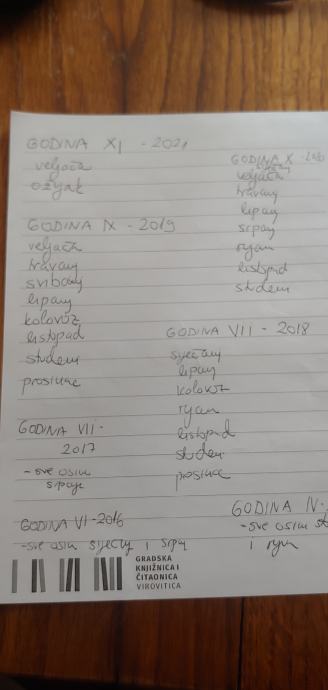 GODINA XI - 2021
veljača
ožujak
GODINA X - 2020
siječanj
veljača
travanj
lipanj
srpanj
rujan
listopad
studeni
GODINA IX - 2019
veljača
travanj
svibanj
lipanj
kolovoz
listopad
studeni
prosinac
GODINA VII - 2018
siječanj
lipanj
kolovoz
rujan
listopad
studeni
prosinac
GODINA VII -
2017
- sve osim
srpnja
GODINA VI - 2016
- sve osim siječnja i srpnja
GODINA IV -
- sve osim
i rujna
GRADSKA
KNJIŽNICA I
ČITAONICA
VIROVITICA